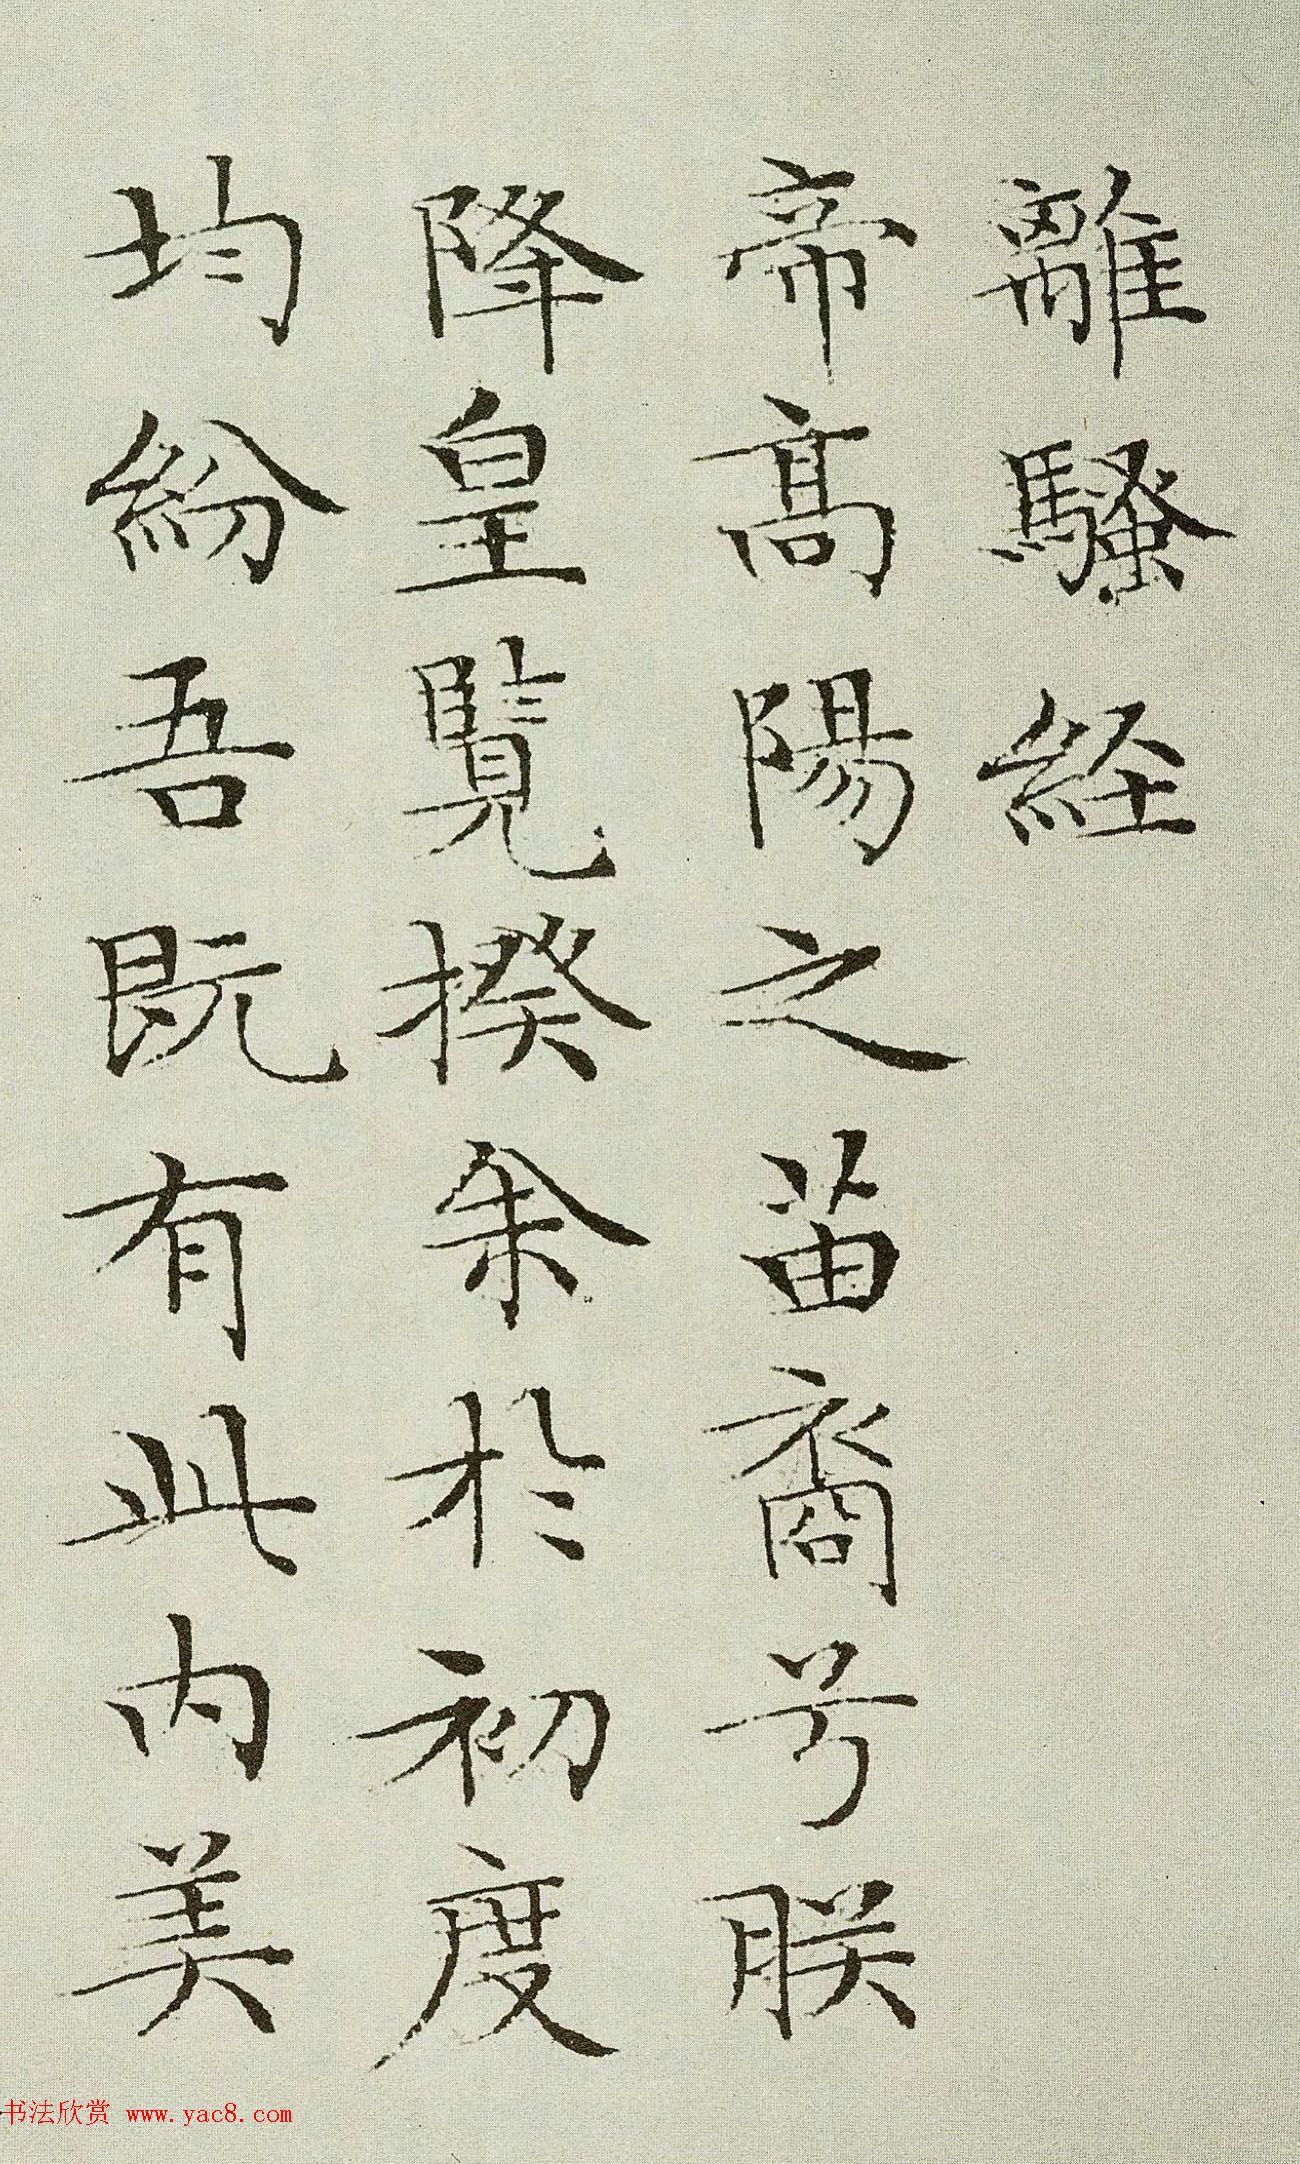 離騷經
帝高陽之苗裔兮朕
降皇覽揆余於初度
均紛吾既有此內美
书法欣赏 www.yac8.com